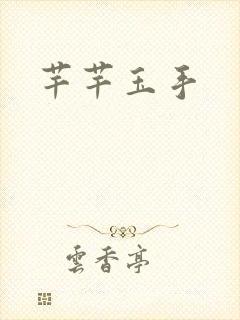 芊芊玉手
雲香亭